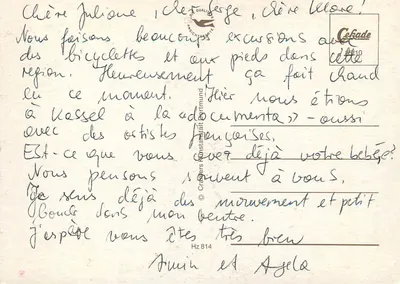 Chère Juliane, cher Serge, chère Laure!
Nous faisons beaucoup excursions avec
des bicyclettes et aux pieds dans cette
region. Heureusement ça fait chaud
en ce moment. Hier nous étions
à Kassel à la «documenta» - aussi
avec des artistes françaises.
Est-ce que vous avez déjà votre bebée?
Nous pensons souvent à vous.
Je sens déjà des mouvement et petit
dans mon ventre.
J'espère vous êtes très bien
Armin et Angela
Hz 814